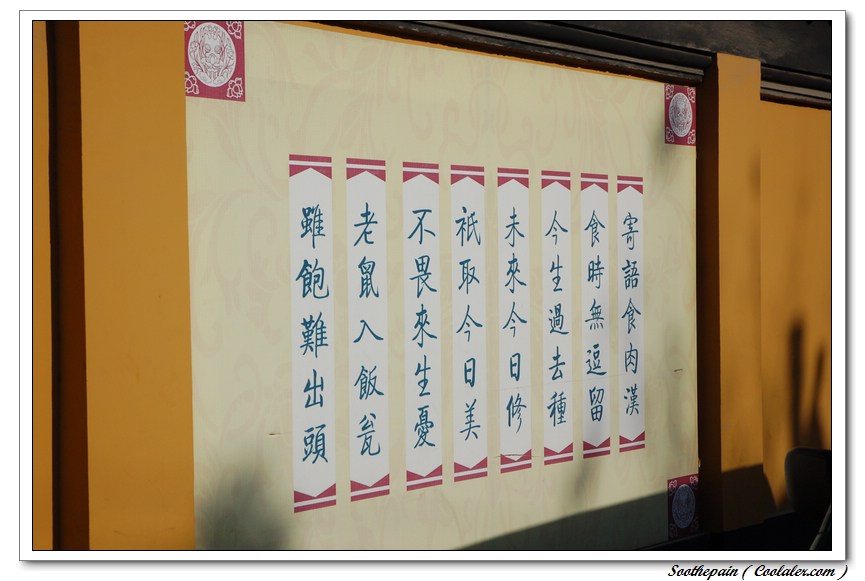 寄語食肉漢
食時無逗留
今生過去種
未來今日修
祇取今日美
不畏來生憂
老鼠入飯瓮
雖飽難出頭
Soothepain ( Coolaler.com )